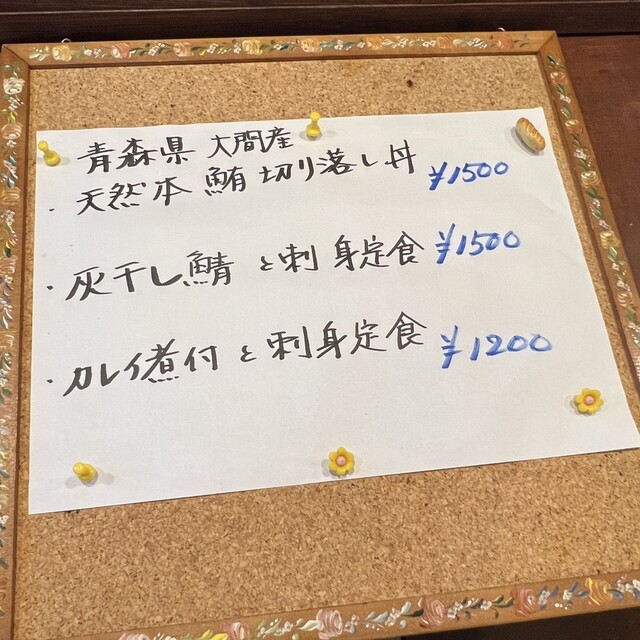 青森県 大間産
・天然本鮪切り落し丼 ¥1500
・灰干し鯖と刺身定食 ¥1500
・カレイ煮付と刺身定食 ¥1200